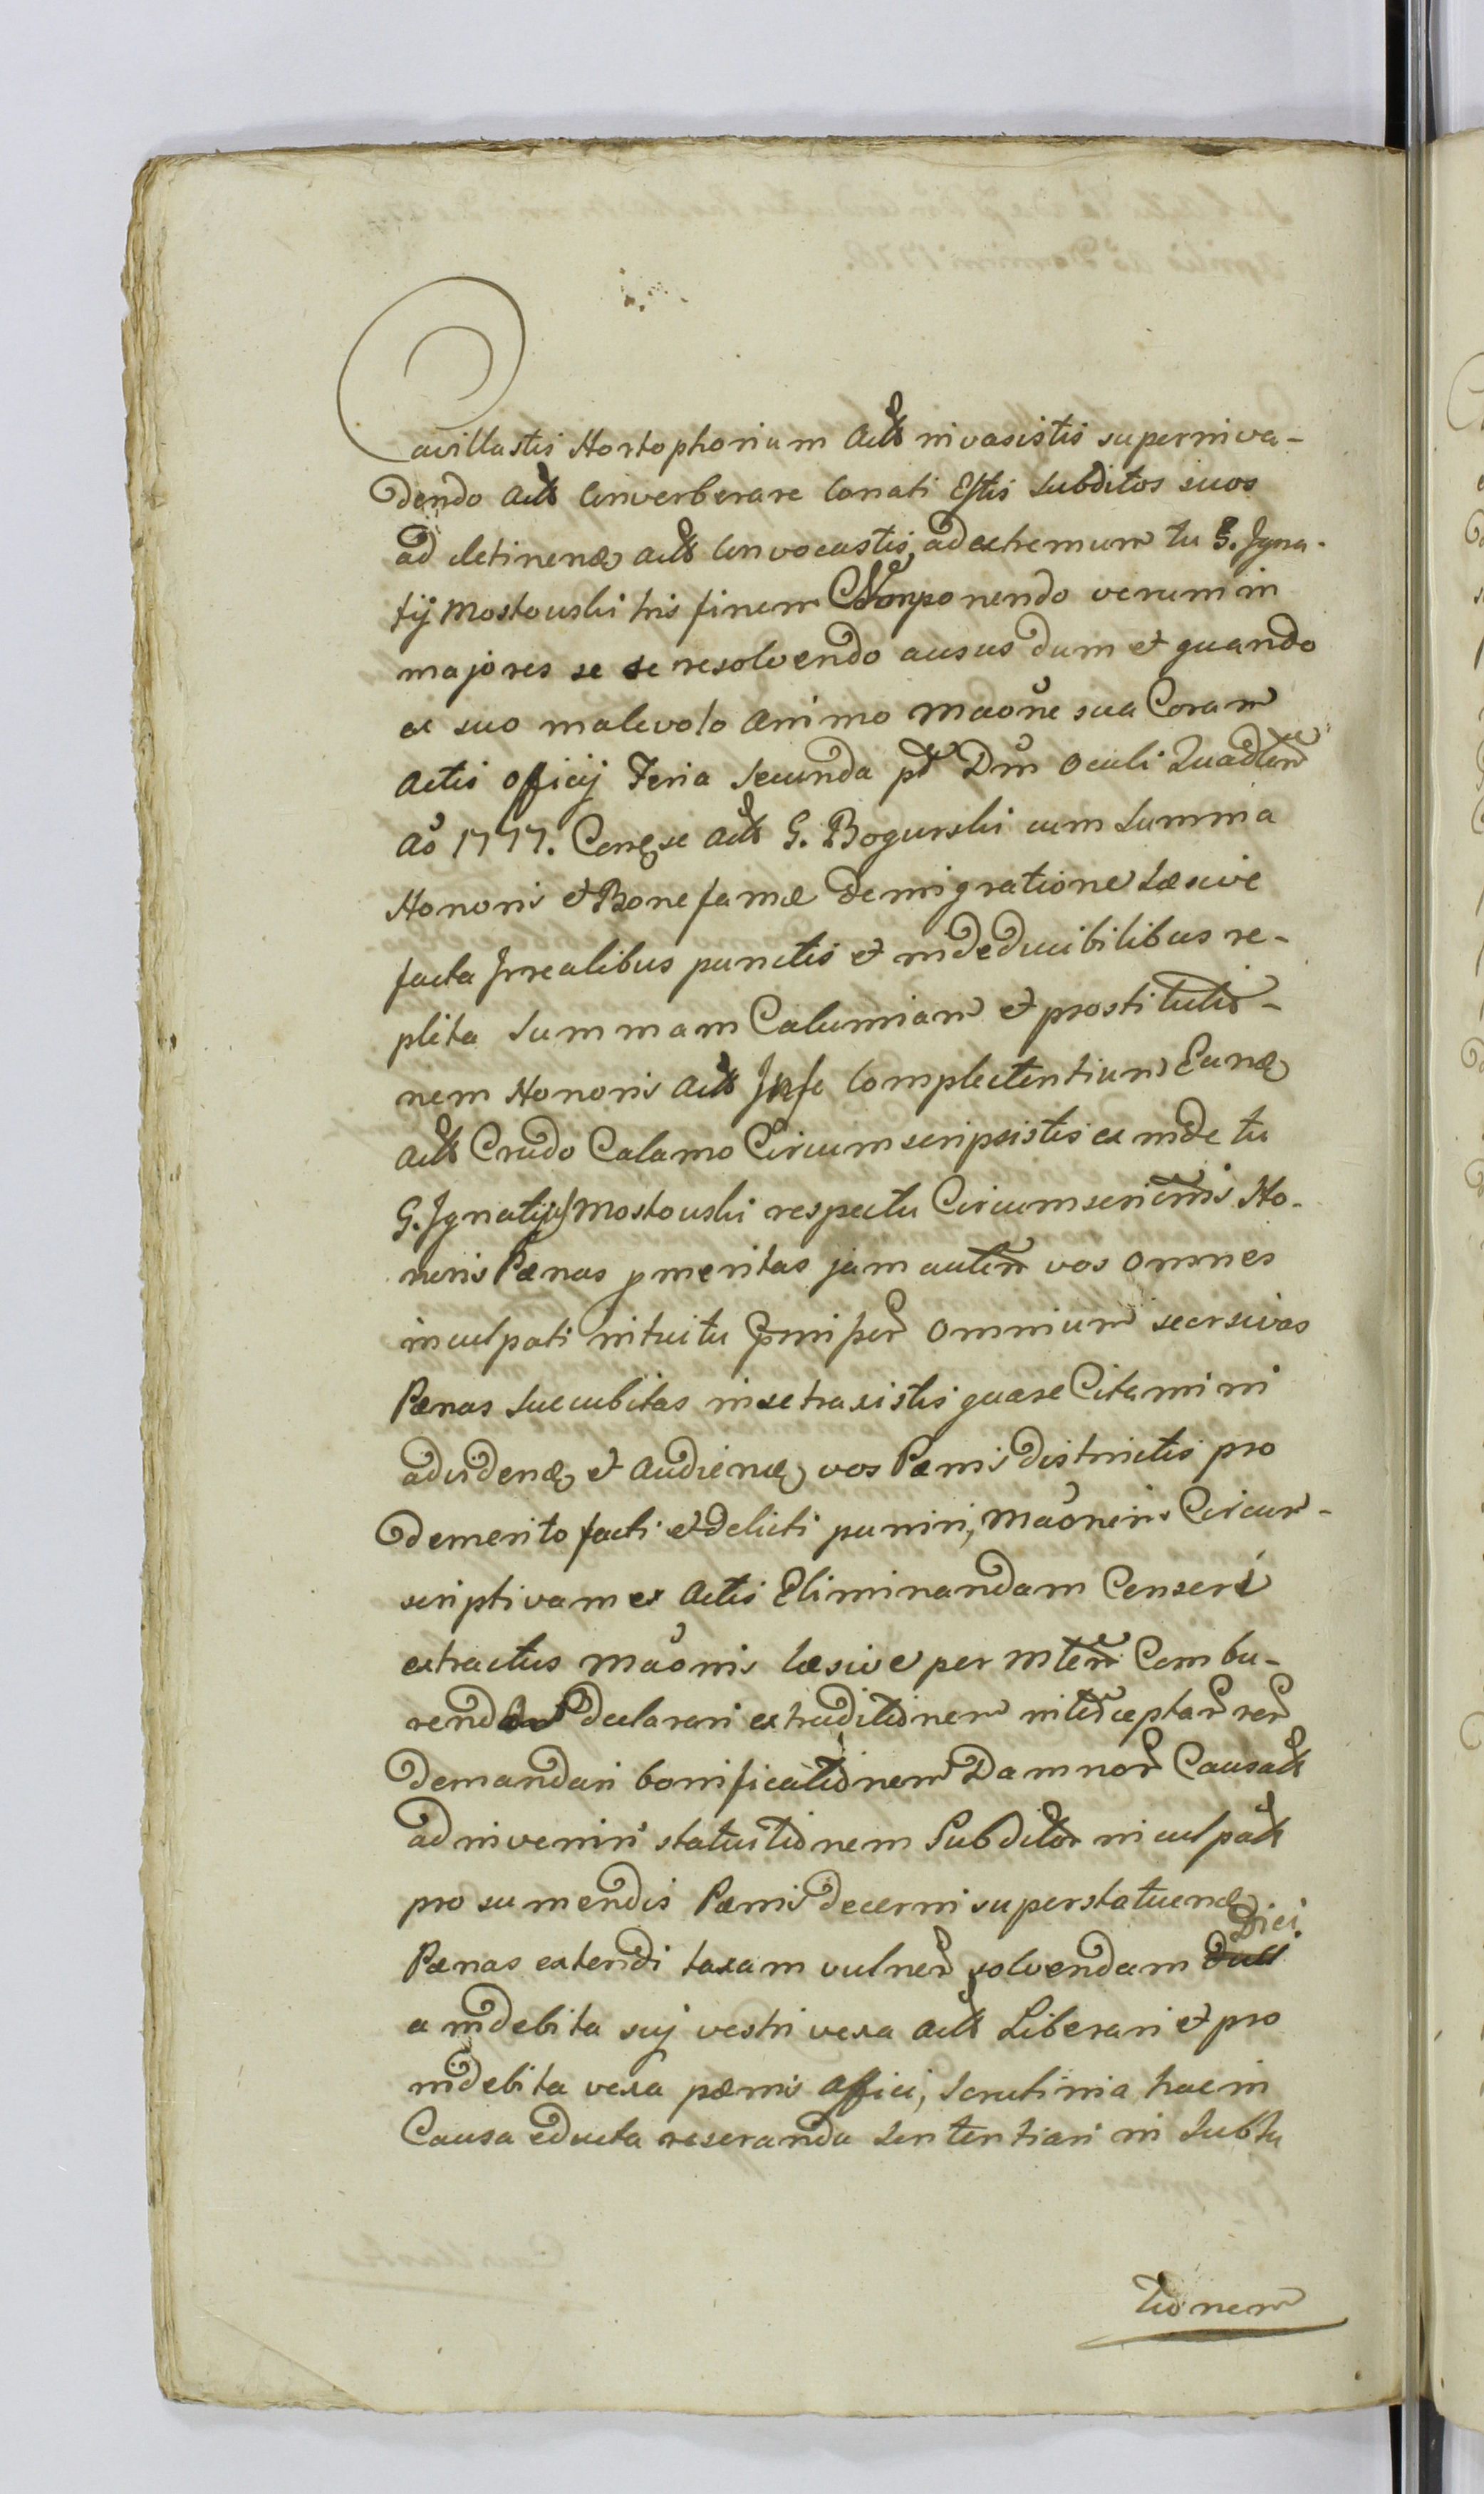 Cavillastis Hortophorium Actt͠ invasistis superinva-
dendo Actt͠ Converberare Conati Estis Subditos suos
ad detinend͠ actt͠ Convocastis, ad extremum tu G. Igna-
tij Mostouski his finem Non ponendo verum in
majores se se resolvendo ausus dum et quando
ex suo malevolo animo Maoñe sua Coram
Actis officij Feria Secunda pt̃ Dñi Oculi Quadlem̃
Aõ 1777. Cong͠ se Actt͠ G. Bogurski cum Summa
Honoris et Bone famæ demigratione Læsive
facta Irrealibus punctis et indeducibilibus re-
pleta Summam Calumniam et prostitutio-
nem Honoris Actt͠ In se Complectentium Eund͠
Actt͠ Crudo Calamo Circumscripsistis ex inde tu
G. Ignatij Mostouski respectu Circumscrioñis Ho-
noris Pænas pmeritas jam autem̃ vos omnes
inculpati intuitu pmisser͠ Omnium seorsivas
Pænas Succubitas in se traxistis quare Citamini
ad vidend͠ et Audiend͠ vos Pænis districtis pro
demerito facti et delicti puniri, Maonem̃ Circum-
scriptivam ex Actis Eliminandam Censeri
extractus Maoñis læsive per Mtem̃ Combu-
rend͠ declarari extraditionem interceptar͠ rer͠
demandari bonificationem Damnor͠ Causatt͠
adinveniri statuitionem Subditor͠ inculpatt͠
pro sumendis Pænis decerni superstatuend͠
Pænas extendi taxam vulner͠ solvendam Dici
a indebita suij vestri vexa Actt͠ Liberari et pro
indebita vexa pænis affici, Scrutinia hac in
Causa educta reseranda Sententiari in Substu
tionem